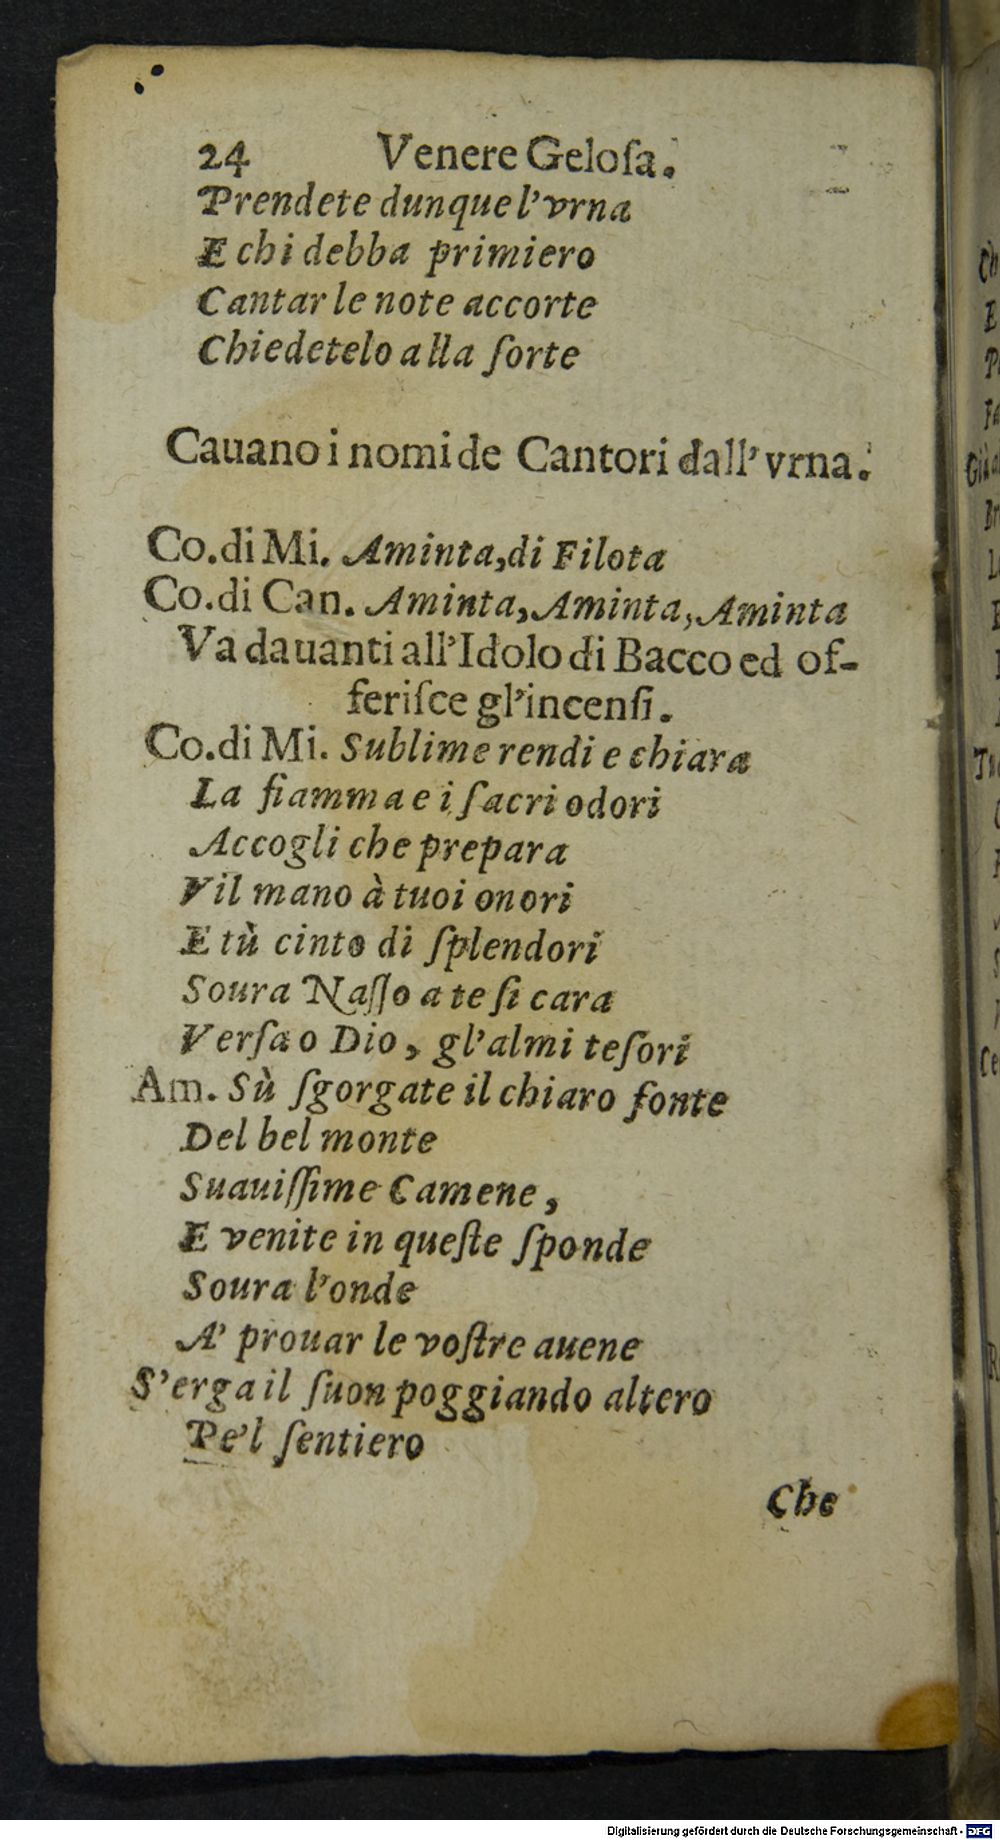 24 Venere Geloſa.
Prendete dunque l'vrna
E chi debba primiero
Cantar le note accorte
Chiedetelo alla ſorte
Cauano i nomi de Cantori dall'vrna.
Co.di Mi. Aminta,di Filota
Co.di Can. Aminta,Aminta,Aminta
Va dauanti all'Idolo di Bacco ed of-
feriſce gl'incenſi.
Co.di Mi. Sublime rendi e chiara
La fiamma e i ſacri odori
Accogli che prepara
Vil mano à tuoi onori
E tù cinto di ſplendori
Soura Naſſo a te ſi cara
Verſa o Dio, gl'almi teſori
Am. Sù ſgorgate il chiaro fonte
Del bel monte
Suauiſſime Camene,
E venite in queſte ſponde
Soura l'onde
A' prouar le voſtre auene
S'erga il ſuon poggiando altero
Pe'l ſentiero
Che
Digitalisierung gefördert durch die Deutsche Forschungsgemeinschaft - DFG